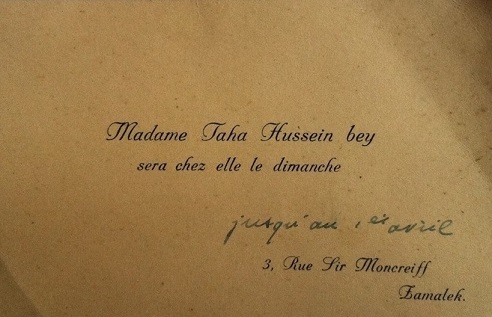 Madame Taha Hussein bey
sera chez elle le dimanche
jusqu'au 1er avril
3, Rue Sir Moncreiff
Zamalek.